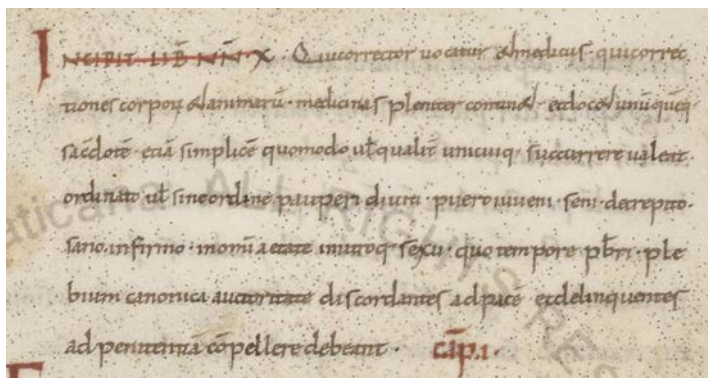 INCIPIT LIB̅ NN̅ X. Qui corrector uocatur & medicus qui correc
tiones corporū & animarū. medicinas pleniter contin&. et doc& unūquēq;
sac̄dotē. etiā simplicē quomodo ul̄ qualit̄ unicuiq; succurrere ualeat.
ordinato ul̄ sine ordine pauperi diuiti. puero iuueni. seni. decrepito.
sano. infirmo. in omni aetate in utroq; sexu. quo tempore pb̄ri. ple
bium canonica auctoritate discordantes ad pacē et delinquentes
ad penitentiā cō̄pellere debeant. CAP̄. I.
ALL RIGHTS RES